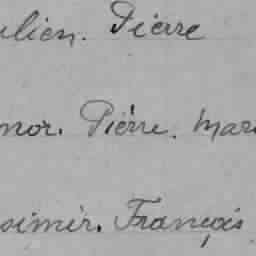 ulien. Pierre
nor. Pierre. Mar
simir. François